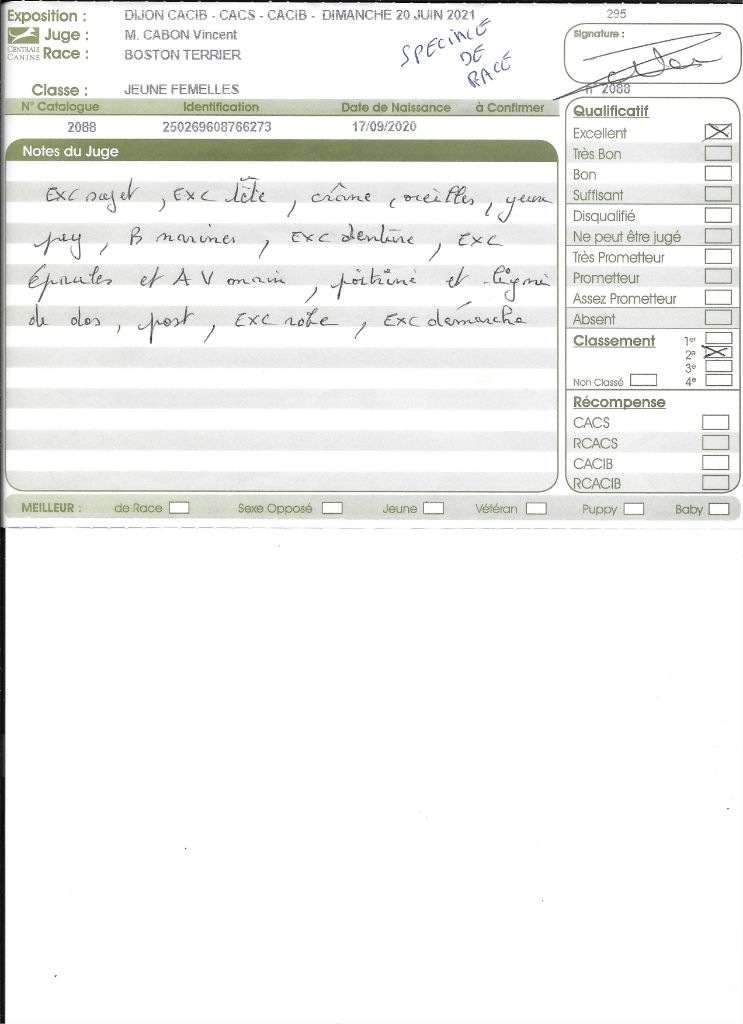 Exposition : DIJON CACIB - CACS - CACIB - DIMANCHE 20 JUIN 2021 295
CENTRALE CANINE
Juge : M. CABON Vincent
Race : BOSTON TERRIER
SPECIALE DE RACE
Signature :
Classe : JEUNE FEMELLES
n° 2088
N° Catalogue Identification Date de Naissance à Confirmer
2088 250269608766273 17/09/2020
Notes du Juge
Exc sujet, Exc tête, crâne, oreilles, yeux
B narines, Exc denture, Exc
Epaules et A V main, poitrine et ligne
de dos, post, Exc robe, Exc démarche
Qualificatif
Excellent
Très Bon
Bon
Suffisant
Disqualifié
Ne peut être jugé
Très Prometteur
Prometteur
Assez Prometteur
Absent
Classement 1er
2e
3e
Non Classé 4e
Récompense
CACS
RCACS
CACIB
RCACIB
MEILLEUR : de Race Sexe Opposé Jeune Vétéran Puppy Baby